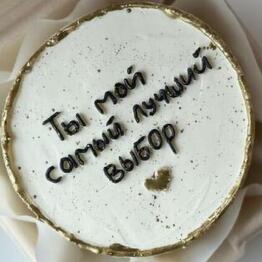 Ты мой
самый лучший
выбор